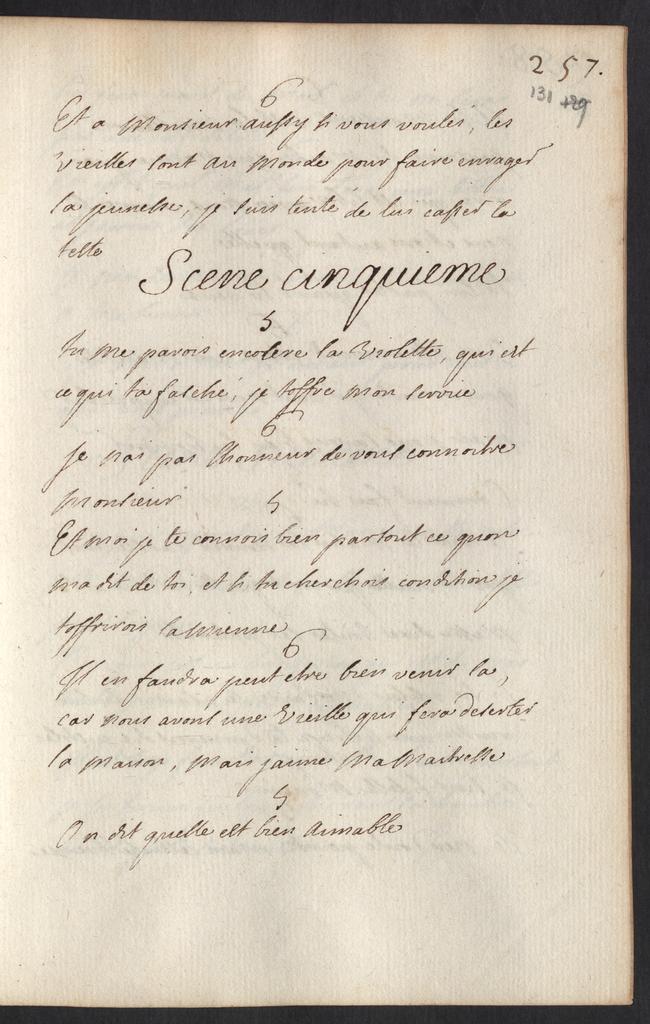 257.
131 129
6
Et a Monsieur aussy si vous voulés, les
vieilles sont au monde pour faire enrager
la jeunesse, je suis tenté de lui casser la
teste
Scene cinquieme
5
tu me parois encolere la violette, qui est
ce qui ta fasché, je toffre mon service
6
Je nai pas lhonneur de vous connoitre
Monsieur
5
Et moi je te connois bien partout ce quon
ma dit de toi, et si tu cherchois condition je
toffrirois la mienne
6
Il en faudra peut etre bien venir la,
car nous avons une vieille qui fera deserter
la maison, mais jaime Ma Maitresse
5
On dit quelle est bien aimable